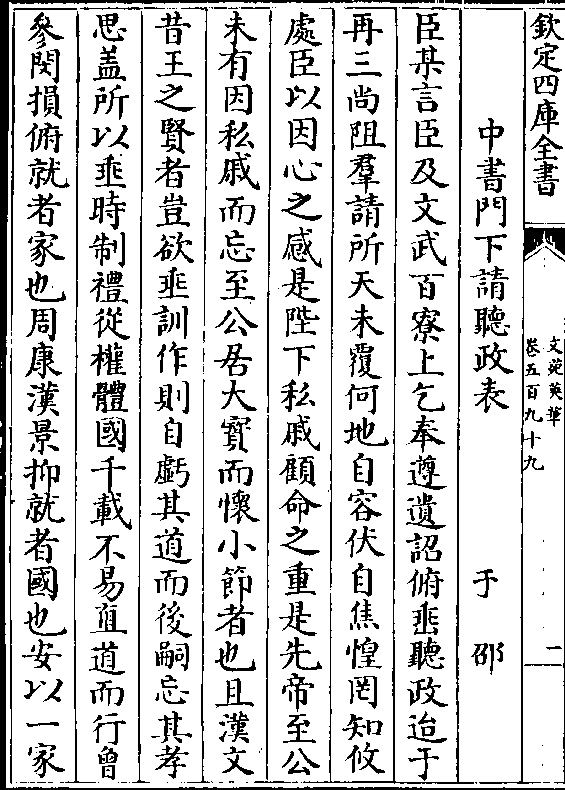 欽定四庫全書
文苑英華
卷五百九十九
二
中書門下請聽政表
于邵
臣某言臣及文武百寮上乞奉遵遺詔俯垂聽政迨于
再三尚阻羣請所天未覆何地自容伏自焦惶罔知攸
處臣以因心之感是陛下私戚顧命之重是先帝至公
未有因私戚而忘至公居大寳而懷小節者也且漢文
昔王之賢者豈欲垂訓作則自虧其道而後嗣忘其孝
思盖所以垂時制禮從權體國千載不易直道而行曾
參閔損俯就者家也周康漢景抑就者國也安以一家